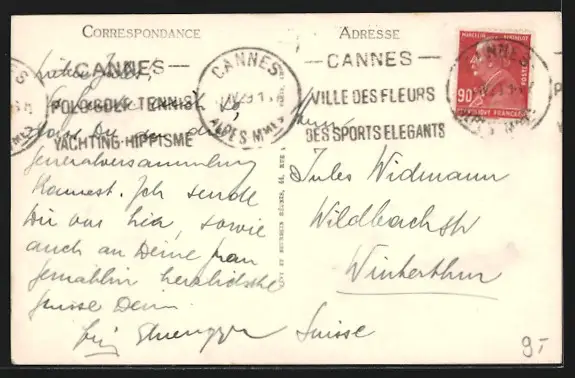 CORRESPONDANCE
ADRESSE
CANNES
CANNES
POLO GOLF TENNIS
YACHTING-HIPPISME
CANNES
29
ALPES MMES
VILLE DES FLEURS
DES SPORTS ELEGANTS
MARCELIN BERTHELOT
POSTES
90
REPUBLIQUE FRANÇAISE
dass Du an der
Generalversammlung
kannst. Ich sende
Dir von hier, sowie
auch an Deine Frau
Gemahlin herzliche
Grüsse Dein
Herrn
Jules Widmann
Wildbachstr
Winterthur
Suisse
9.-